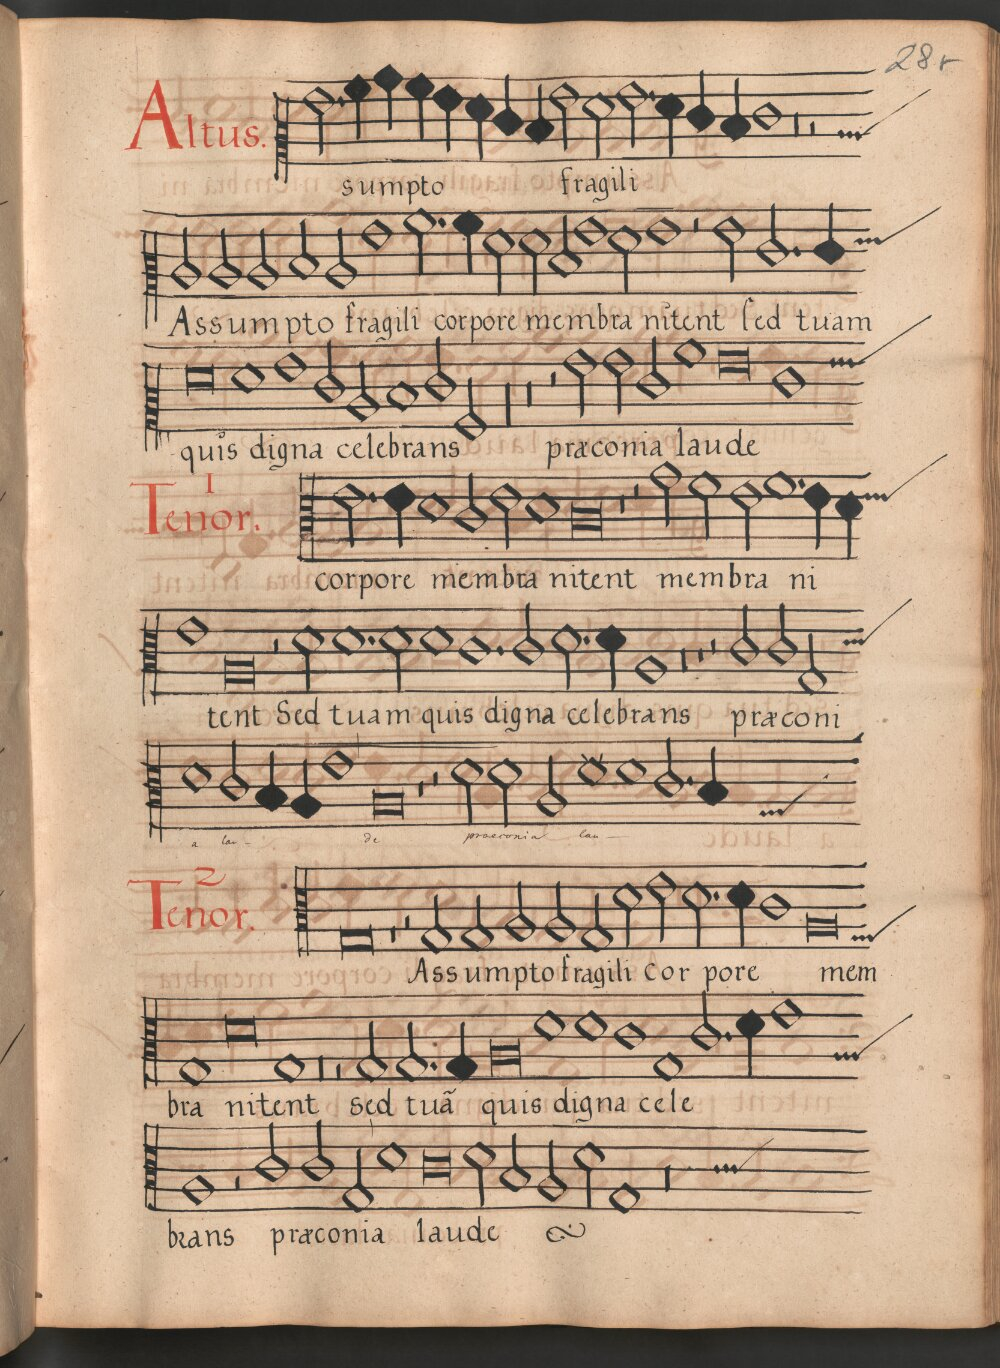 28r
Altus.
sumpto fragili
Assumpto fragili corpore membra nitent sed tuam
quis digna celebrans præconia laude
Tenor. 1
corpore membra nitent membra ni
tent Sed tuam quis digna celebrans præconi
a lau- de praeconia lau
Tenor. 2
Assumpto fragili Cor pore mem
bra nitent sed tuã quis digna cele
brans præconia laude